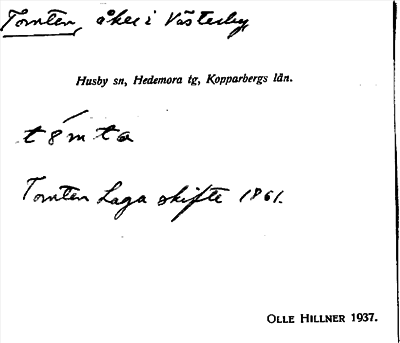 Tomten, åker i Västerby,
Husby sn, Hedemora tg, Kopparbergs län.
Tomten Laga skifte 1861.
OLLE HILLNER 1937.